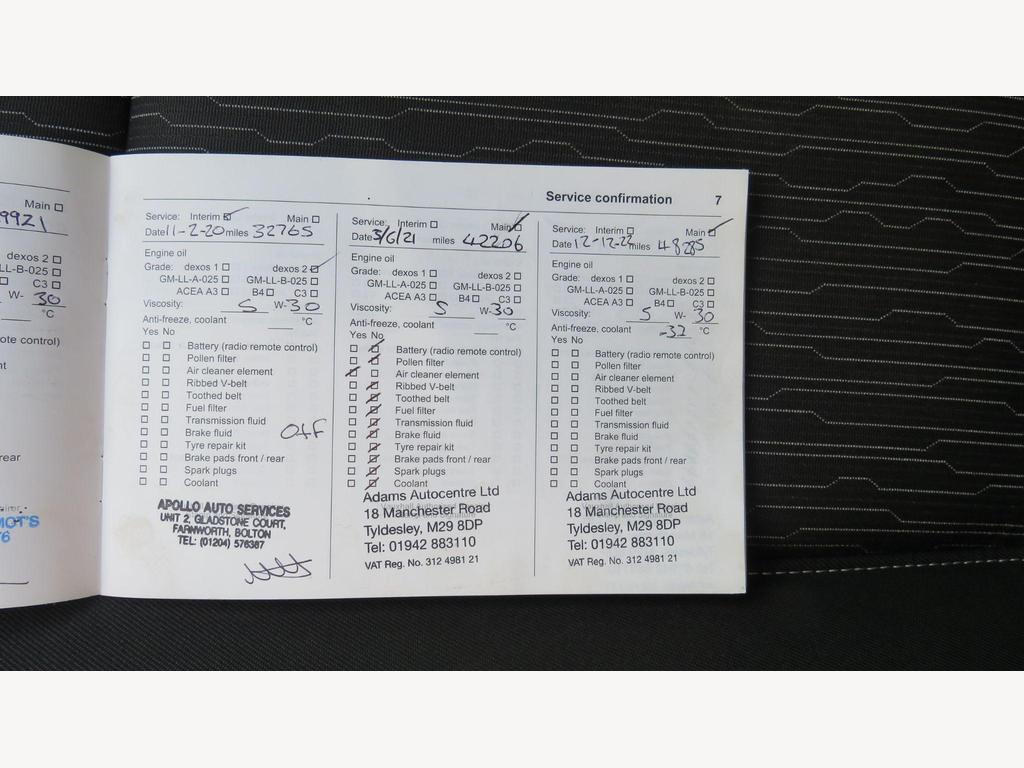 Main
9921
dexos 2
LL-B-025
C3
W- 30
°C
ote control)
rear
MOT'S
76
Service confirmation 7
Service: Interim Main
Date 11-2-20 miles 32765
Engine oil
Grade: dexos 1 dexos 2
GM-LL-A-025 GM-LL-B-025
ACEA A3 B4 C3
Viscosity: 5 W-30
Anti-freeze, coolant °C
Yes No
Battery (radio remote control)
Pollen filter
Air cleaner element
Ribbed V-belt
Toothed belt
Fuel filter
Transmission fluid
Brake fluid O+F
Tyre repair kit
Brake pads front / rear
Spark plugs
Coolant
APOLLO AUTO SERVICES
UNIT 2, GLADSTONE COURT,
FARNWORTH, BOLTON
TEL: (01204) 576387
Service: Interim Main
Date 3/6/21 miles 42206
Engine oil
Grade: dexos 1 dexos 2
GM-LL-A-025 GM-LL-B-025
ACEA A3 B4 C3
Viscosity: 5 W-30
Anti-freeze, coolant °C
Yes No
Battery (radio remote control)
Pollen filter
Air cleaner element
Ribbed V-belt
Toothed belt
Fuel filter
Transmission fluid
Brake fluid
Tyre repair kit
Brake pads front / rear
Spark plugs
Coolant
Adams Autocentre Ltd
18 Manchester Road
Tyldesley, M29 8DP
Tel: 01942 883110
VAT Reg. No. 312 4981 21
Service: Interim Main
Date 12-12-22 miles 48285
Engine oil
Grade: dexos 1 dexos 2
GM-LL-A-025 GM-LL-B-025
ACEA A3 B4 C3
Viscosity: 5 W- 30
Anti-freeze, coolant -32 °C
Yes No
Battery (radio remote control)
Pollen filter
Air cleaner element
Ribbed V-belt
Toothed belt
Fuel filter
Transmission fluid
Brake fluid
Tyre repair kit
Brake pads front / rear
Spark plugs
Coolant
Adams Autocentre Ltd
18 Manchester Road
Tyldesley, M29 8DP
Tel: 01942 883110
VAT Reg. No. 312 4981 21